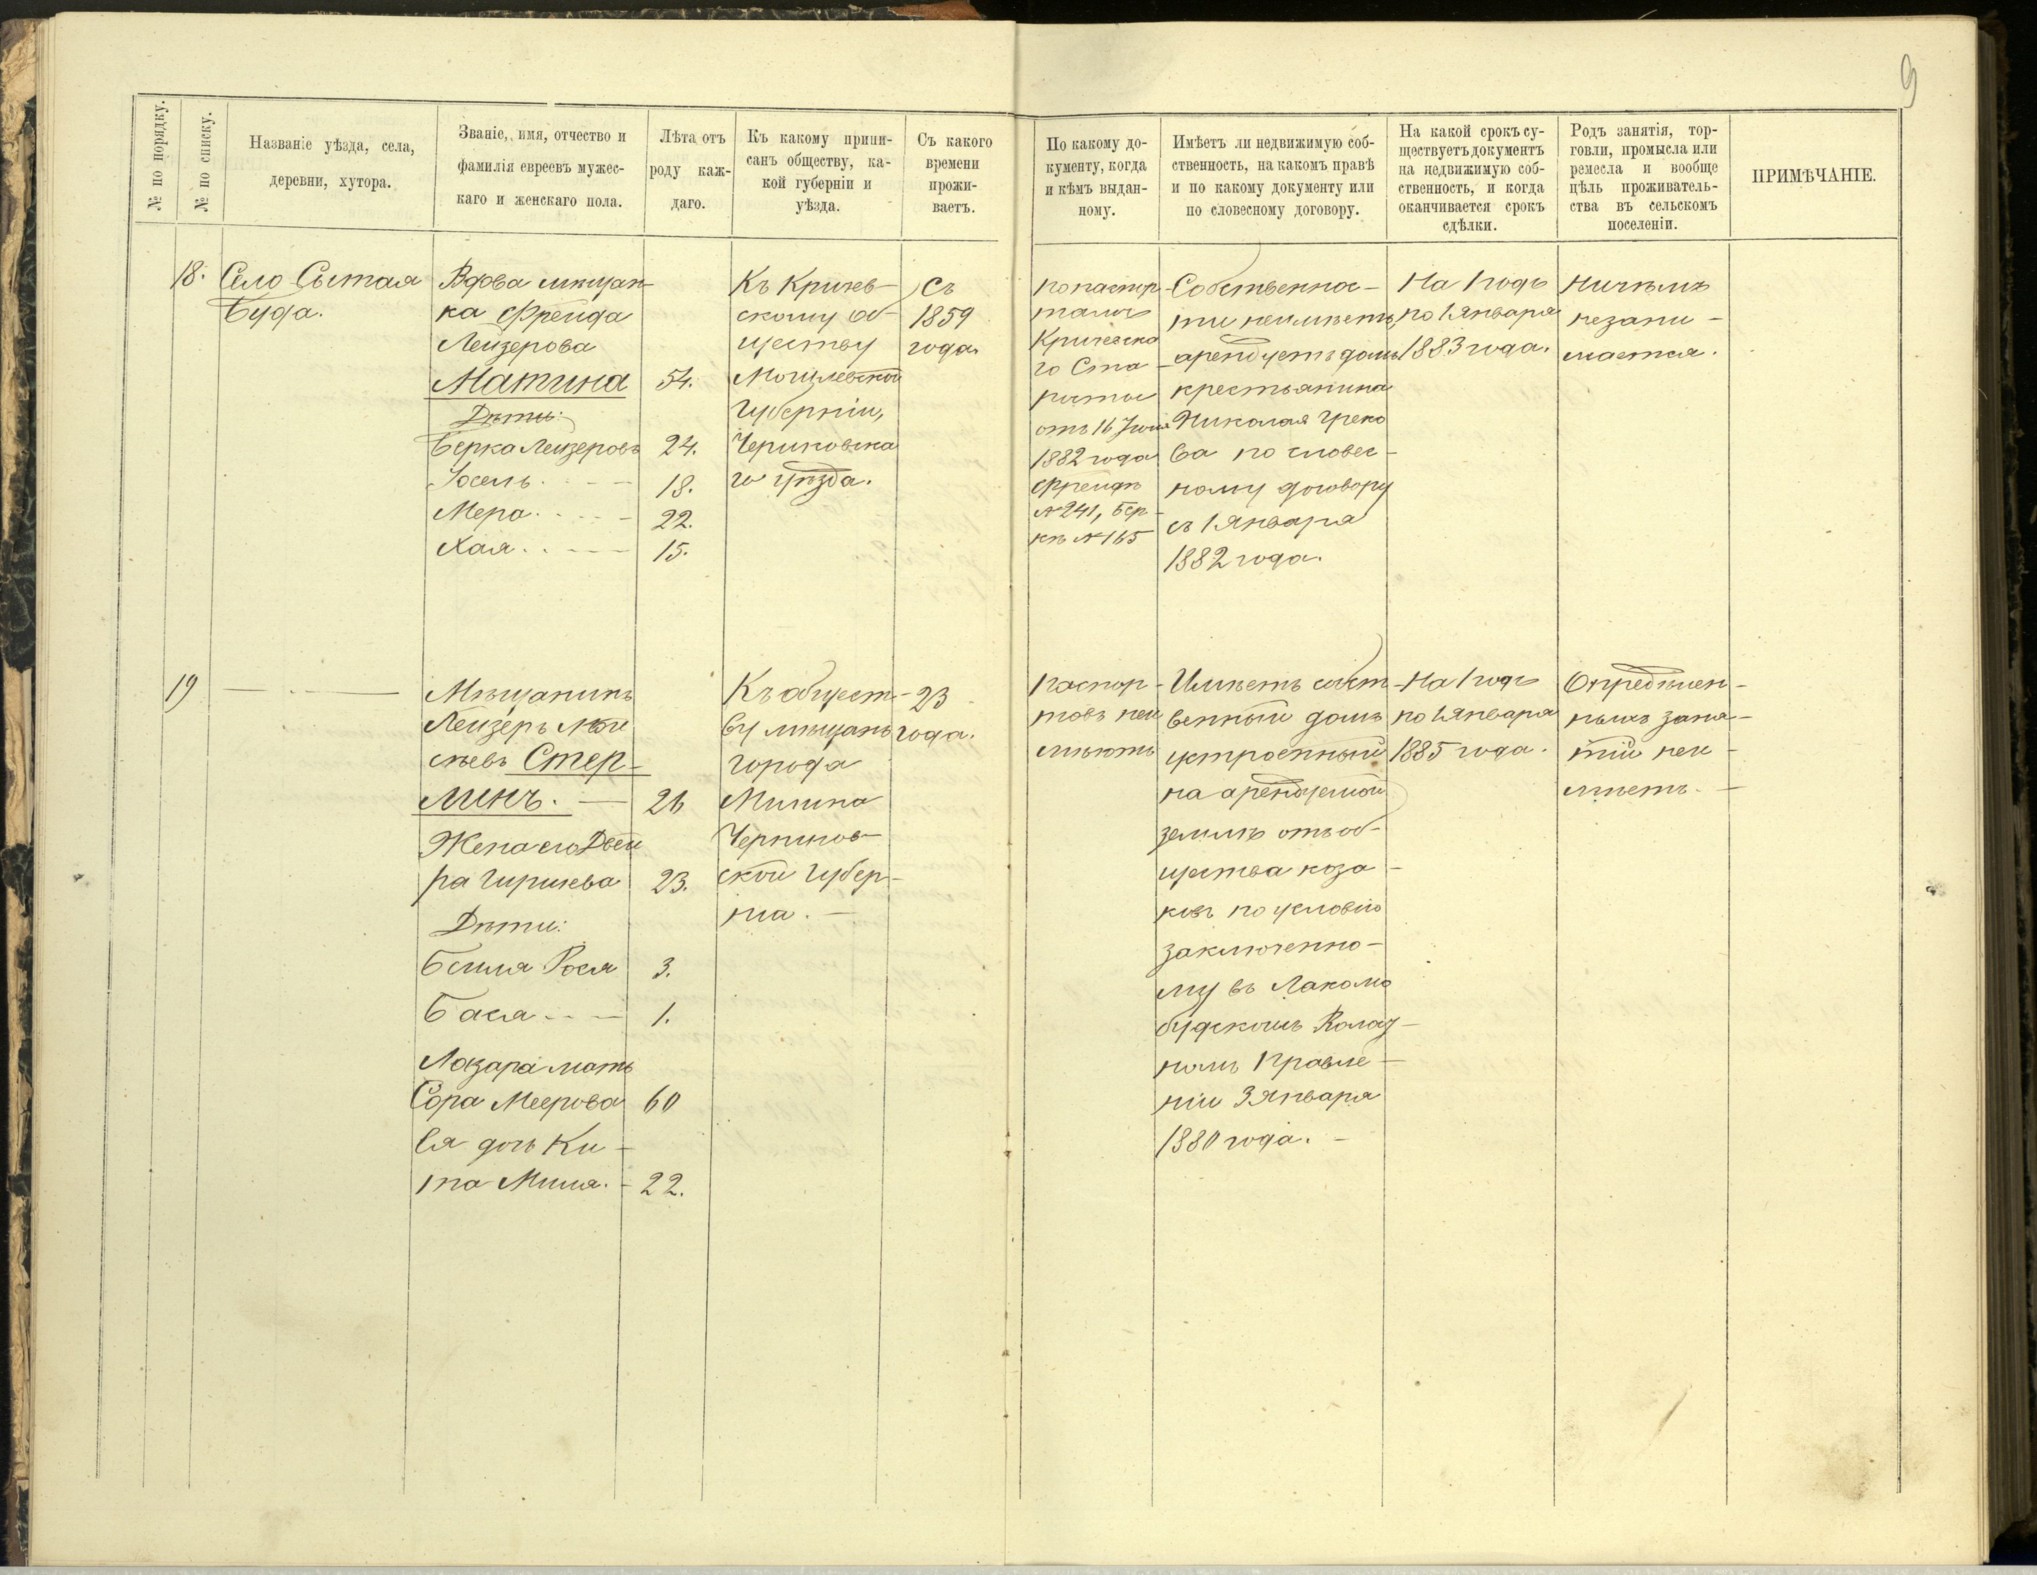 9
№ по порядку.
№ по списку.
Названіе уѣзда, села,
деревни, хутора.
Званіе, имя, отчество и
фамилія евреевъ мужес-
каго и женскаго пола.
Лѣта отъ
роду каж-
даго.
Къ какому припи-
санъ обществу, ка-
кой губерніи и
уѣзда.
Съ какого
времени
прожи-
ваетъ.
По какому до-
кументу, когда
и кѣмъ выдан-
ному.
Имѣетъ ли недвижимую соб-
ственность, на какомъ правѣ
и по какому документу или
по словесному договору.
На какой срокъ су-
ществуетъ документъ
на недвижимую соб-
ственность, и когда
оканчивается срокъ
сдѣлки.
Родъ занятія, тор-
говли, промысла или
ремесла и вообще
цѣль проживатель-
ства въ сельскомъ
поселеніи.
ПРИМѢЧАНІЕ.
18.
Село Сытая
Буда.
Вдова мѣщан-
ка Фрейда
Лейзерова
Матина 54.
Дѣти:
Берка Лейзеровъ 24.
Іосель 18.
Мера 22.
Хая 15.
Къ Кричев-
скому об-
ществу
Могилевской
Губерніи,
Чериковска
го уѣзда.
Съ
1859
года.
по паспор-
тамъ
Кричевска
го Ста-
росты
отъ 16 Іюня
1882 года
Фрейдѣ
№ 241, Бер-
кѣ № 165
Собственнос-
ти неимѣетъ,
арендуетъ домъ
крестьянина
Николая Греко
ва по словес-
ному договору
съ 1 Января
1882 года.
На 1 годъ
по 1 Января
1883 года.
Ничѣмъ
незани-
мается.
19
Мѣщанинъ
Лейзеръ Мои
сѣевъ Стер-
линъ. 26
Жена его Двей
ра Гиршева 23.
Дѣти:
Бейля Рося 3.
Бася 1.
Лазара мать
Сора Меерова 60
Ея дочь Ки-
на Миля. 22.
Къ общест-
ву мѣщанъ
города
Мглина
Чернигов-
ской Губер-
ніи.
23
года.
Паспор-
товъ неи
мѣютъ
Имѣетъ собст
венный домъ
устроенный
на арендуемой
землѣ отъ об-
щества коза-
ковъ по условію
заключенно-
му въ Лакомо
будскомъ Волост-
номъ Правле-
ніи 3 Января
1880 года.
На 1 годъ
по 1 Января
1885 года.
Опредѣлен-
ныхъ заня-
тій неи-
мѣетъ.